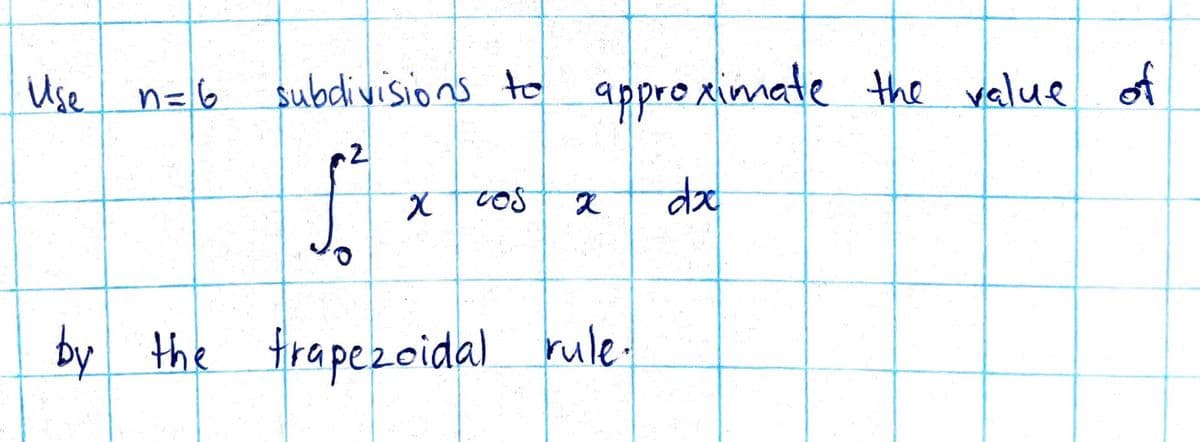 Use n=6 subdivisions to approximate the value of
∫₀² x cos x dx
by the trapezoidal rule.